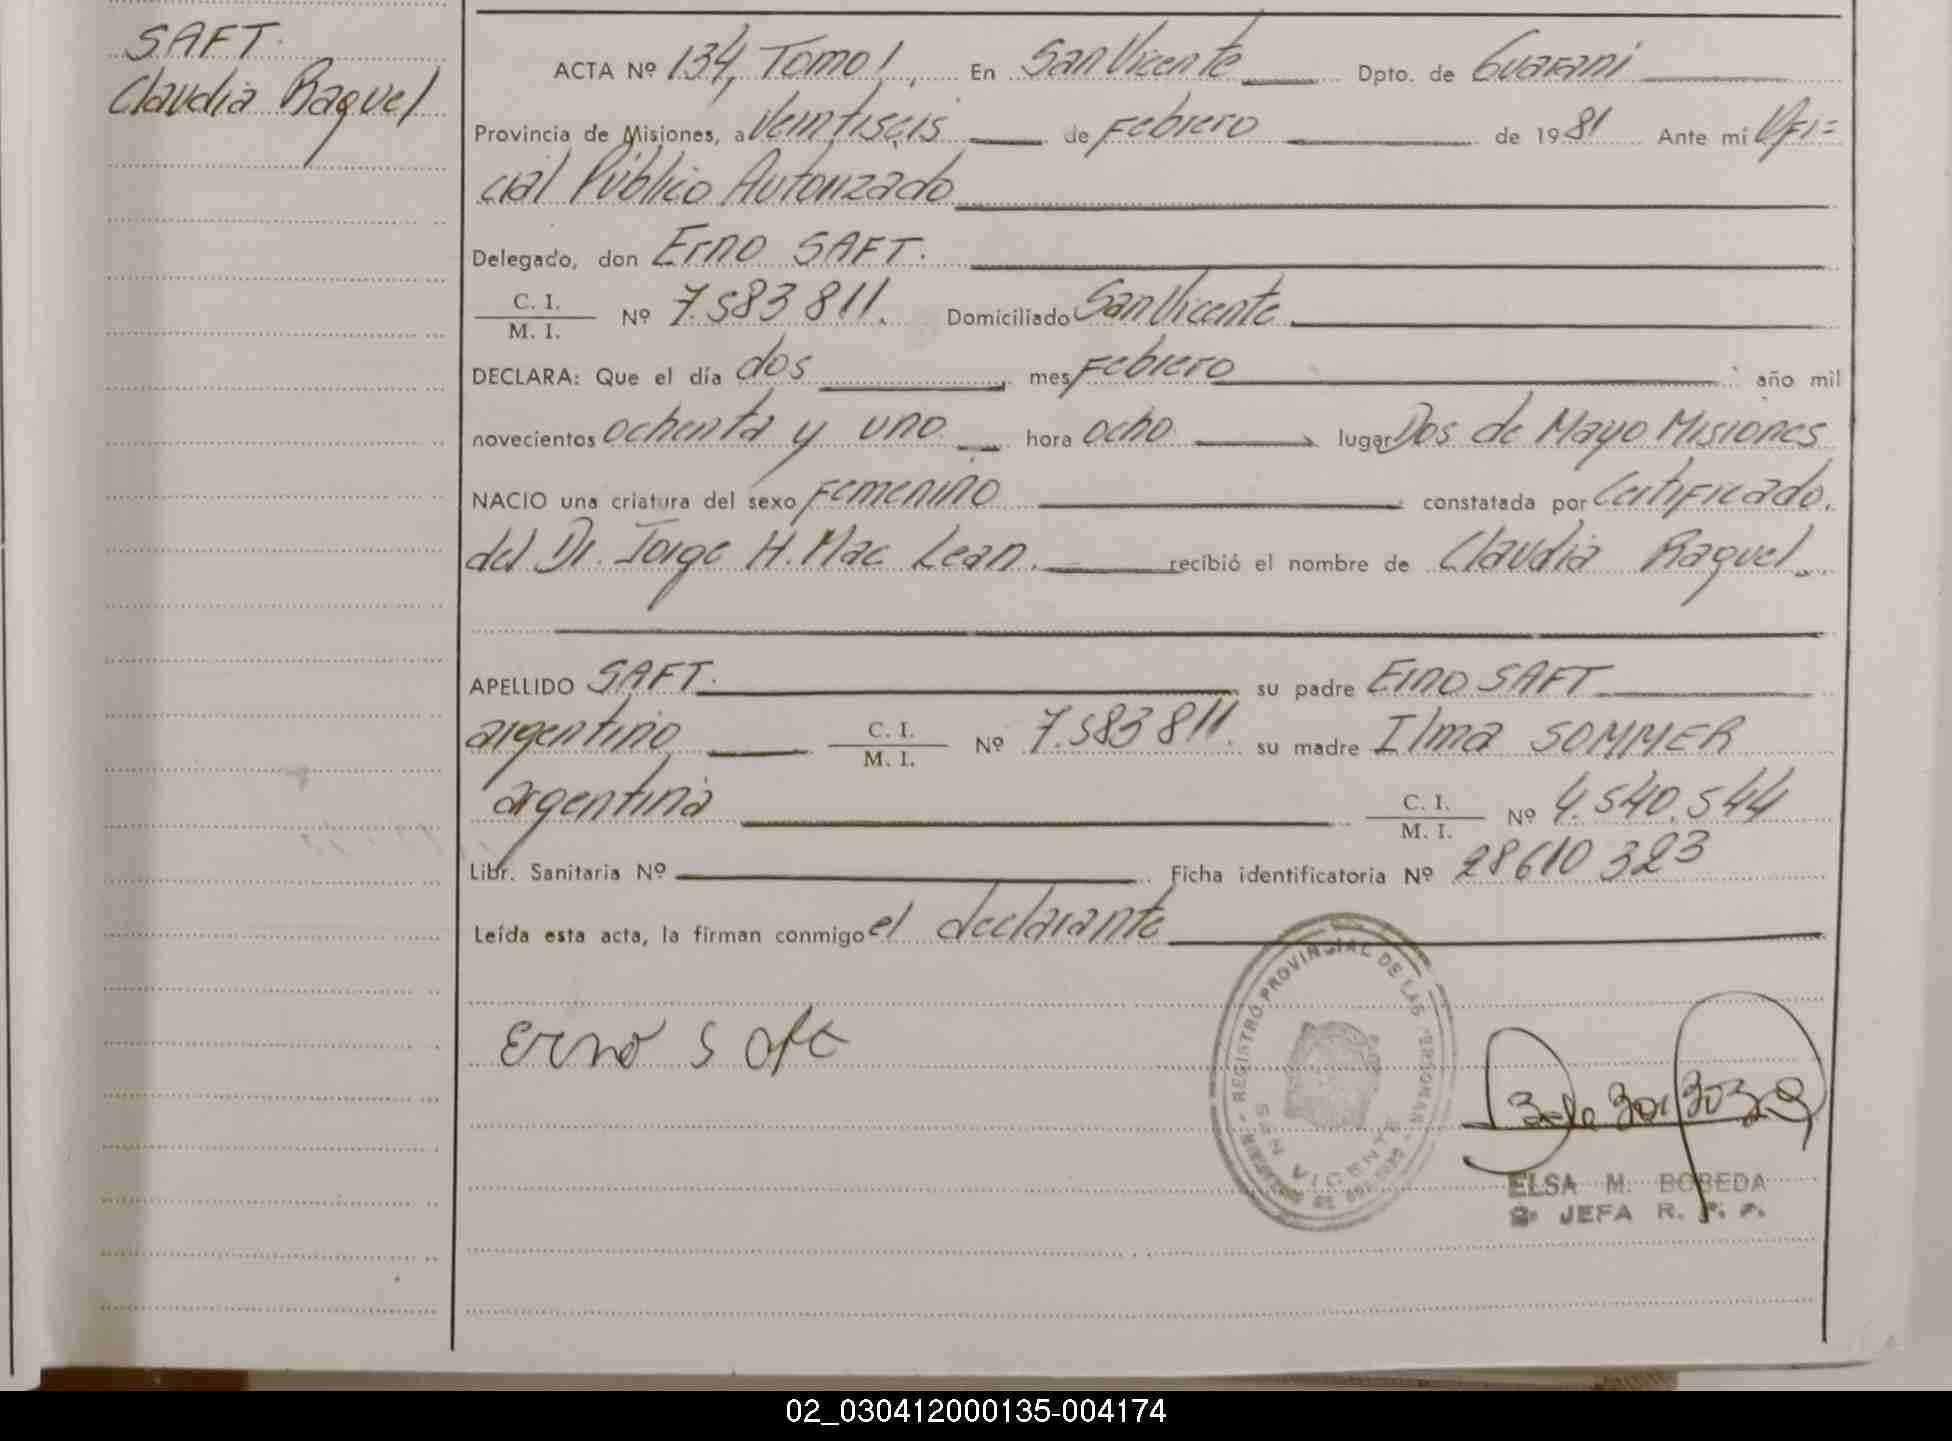 SAFT.
Claudia Raquel
ACTA Nº 134, Tomo I, En San Vicente Dpto. de Guarani
Provincia de Misiones, a Veintiseis de Febrero de 1981 Ante mí Ofi=
cial Público Autorizado
Delegado, don Erno SAFT.
C. I.
M. I.
Nº 7.583811. Domiciliado San Vicente
DECLARA: Que el día dos mes Febrero año mil
novecientos ochenta y uno hora ocho lugar Dos de Mayo Misiones
NACIO una criatura del sexo Femenino constatada por Certificado.
del Dr. Jorge H. Mac Lean. recibió el nombre de Claudia Raquel.
APELLIDO SAFT. su padre Erno SAFT
argentino C. I. M. I. Nº 7.583811. su madre Ilma SOMMER
argentina C. I. M. I. Nº 4.540.544
Libr. Sanitaria Nº Ficha identificatoria Nº 28610323
Leída esta acta, la firman conmigo el declarante
Erno Saft
REGISTRO PROVINCIAL DE LAS PERSONAS
SAN VICENTE
MINISTERIO DE GOBIERNO
ELSA M. BOBEDA
JEFA R. P. P.
02_030412000135-004174